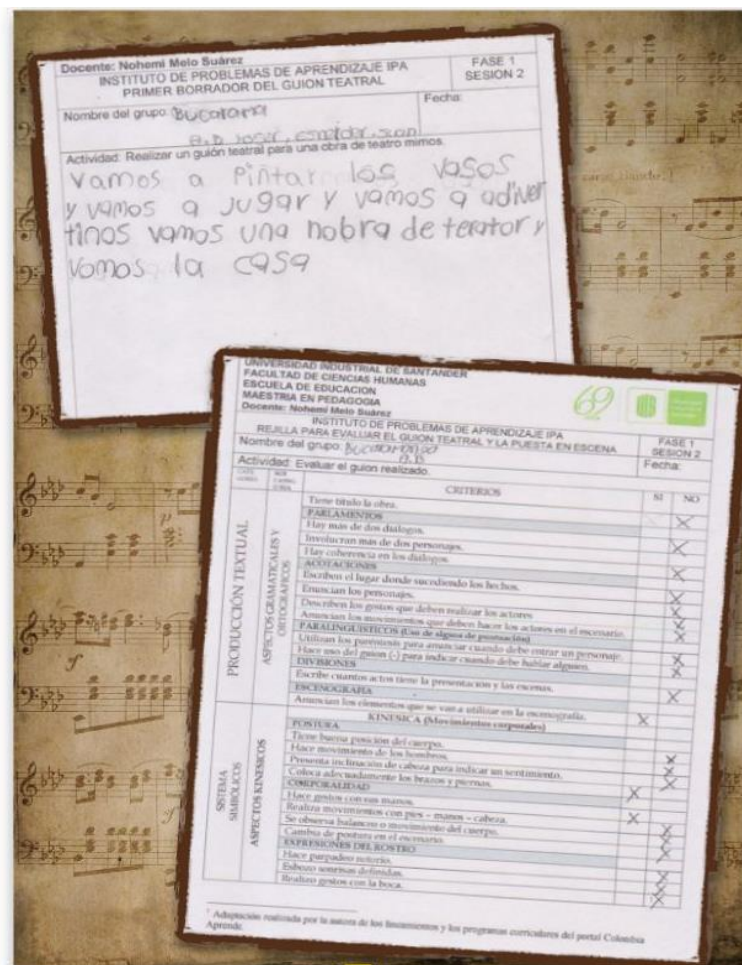 Docente: Nohemi Melo Suárez
INSTITUTO DE PROBLEMAS DE APRENDIZAJE IPA
PRIMER BORRADOR DEL GUION TEATRAL
FASE 1
SESION 2
Nombre del grupo:
Fecha:
A.D
Actividad: Realizar un guión teatral para una obra de teatro mimos.
vamos a Piñtar los vasos
y vamos a JUgar y vamos a adiver
tinos vamos una nobra de terator y
vamos la casa
UNIVERSIDAD INDUSTRIAL DE SANTANDER
FACULTAD DE CIENCIAS HUMANAS
ESCUELA DE EDUCACION
MAESTRIA EN PEDAGOGIA
Docente: Nohemi Melo Suárez
INSTITUTO DE PROBLEMAS DE APRENDIZAJE IPA
REJILLA PARA EVALUAR EL GUION TEATRAL Y LA PUESTA EN ESCENA
FASE 1
SESION 2
Nombre del grupo:
Fecha:
Actividad: Evaluar el guion realizado.
CRITERIOS
SI
NO
PRODUCCIÓN TEXTUAL
ASPECTOS GRAMATICALES Y
ORTOGRAFICOS
Tiene titulo la obra.
PARLAMENTOS
Hay más de dos diálogos.
Involucran más de dos personajes.
Hay coherencia en los diálogos.
ACOTACIONES
Escriben el lugar donde sucediendo los hechos.
Enuncian los personajes.
Describen los gestos que deben realizar los actores
Anuncian los movimientos que deben hacer los actores en el escenario.
PARALINGUISTICOS (Uso de signos de puntuación)
Utilizan los paréntesis para anunciar cuando debe entrar un personaje.
Hace uso del guion (-) para indicar cuando debe hablar alguien.
DIVISIONES
Escribe cuantos actos tiene la presentación y las escenas.
ESCENOGRAFIA
Anuncian los elementos que se van a utilizar en la escenografía.
SISTEMA
SIMBÓLICOS
ASPECTOS KINESICOS
KINESICA (Movimientos corporales)
POSTURA
Tiene buena posición del cuerpo.
Hace movimiento de los hombros.
Presenta inclinación de cabeza para indicar un sentimiento.
Coloca adecuadamente los brazos y piernas.
CORPORALIDAD
Hace gestos con sus manos.
Realiza movimientos con pies – manos – cabeza.
Se observa balanceo o movimiento del cuerpo.
Cambia de postura en el escenario.
EXPRESIONES DEL ROSTRO
Hace parpadeo notorio.
Esbozo sonrisas definidas.
Realizo gestos con la boca.
¹ Adaptación realizada por la autora de los lineamientos y los programas curriculares del portal Colombia
Aprende.